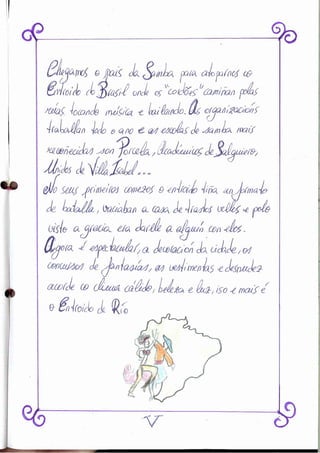 Chegamos o país da Samba para atoparnos co
Entroido do Brasil onde os "cordões" camiñan polas
rúas tocando música e bailando. As organizacións
traballan todo o ano e as escolas de samba mais
recoñecidas son Portela, Académicos de Salgueiro,
Unidos de Villa Isabel...
No seus primeiros comezos o entroido tiña un formato
de batalla, vaciaban a casa de trastos vellos e polo
visto a gracia era darlle a alguén con elos.
Agora é espectacular, a decoración da cidade, os
concursos de fantasías, as vestimentas e desnudez
acorde co clima cálido; beleza e luz, iso e mais é
o Entroido de Río
V